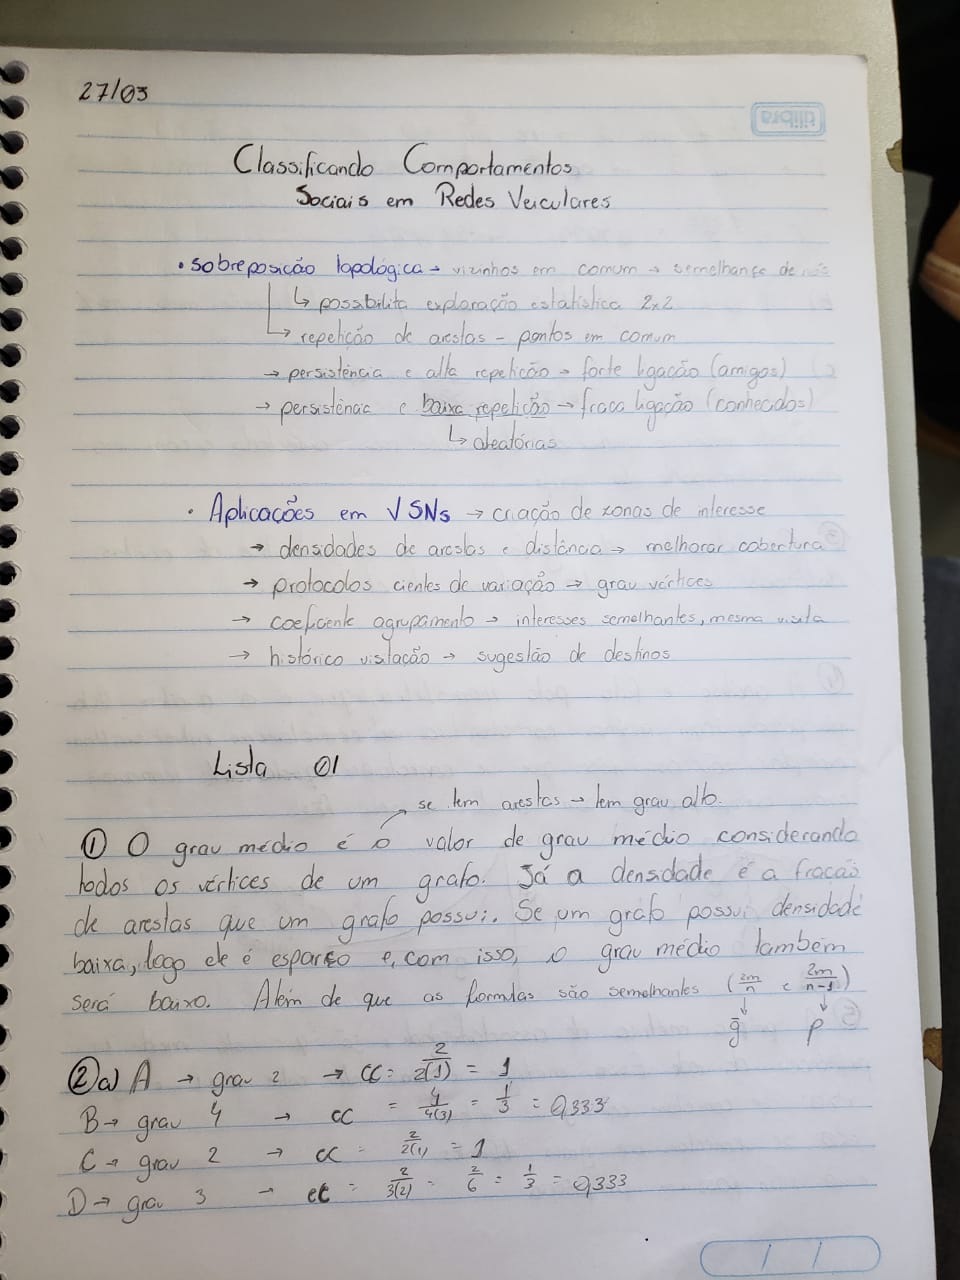 27/03
tilibra
Classificando Comportamentos
Sociais em Redes Veiculares
• sobreposição topológica → vizinhos em comum → semelhança de nós
↳ possibilita exploração estatística 2x2
↳ repetição de arestas - pontos em comum
→ persistência e alta repetição → forte ligação (amigos)
→ persistência e baixa repetição → fraca ligação (conhecidos)
↳ aleatórias
• Aplicações em VSNs → criação de zonas de interesse
→ densidades de arestas e distância → melhorar cobertura
→ protocolos cientes de variação → grau vértices
→ coeficiente agrupamento → interesses semelhantes, mesma
→ histórico visitação → sugestão de destinos
Lista 01
se tem arestas → tem grau alto.
① O grau médio é o valor de grau médio considerando
todos os vértices de um grafo. Já a densidade é a fração
de arestas que um grafo possui. Se um grafo possui densidade
baixa, logo ele é esparso e, com isso, o grau médio também
será baixo. Além de que as formulas são semelhantes (2m/n e 2m/n-1)
ḡ p
② a) A → grau 2 → CC = 2/2(1) = 1
B → grau 4 → CC = 4/4(3) = 1/3 = 0,333
C → grau 2 → CC = 2/2(1) = 1
D → grau 3 → CC = 2/3(2) = 2/6 = 1/3 = 0,333